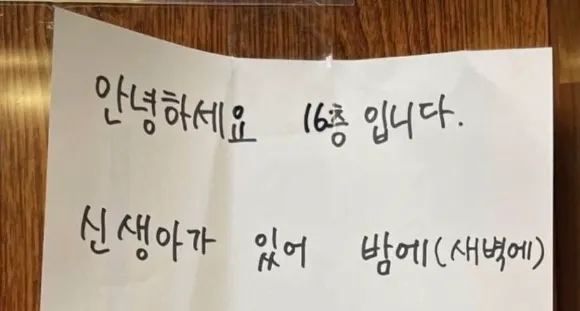 안녕하세요 16층 입니다.
신생아가 있어 밤에(새벽에)